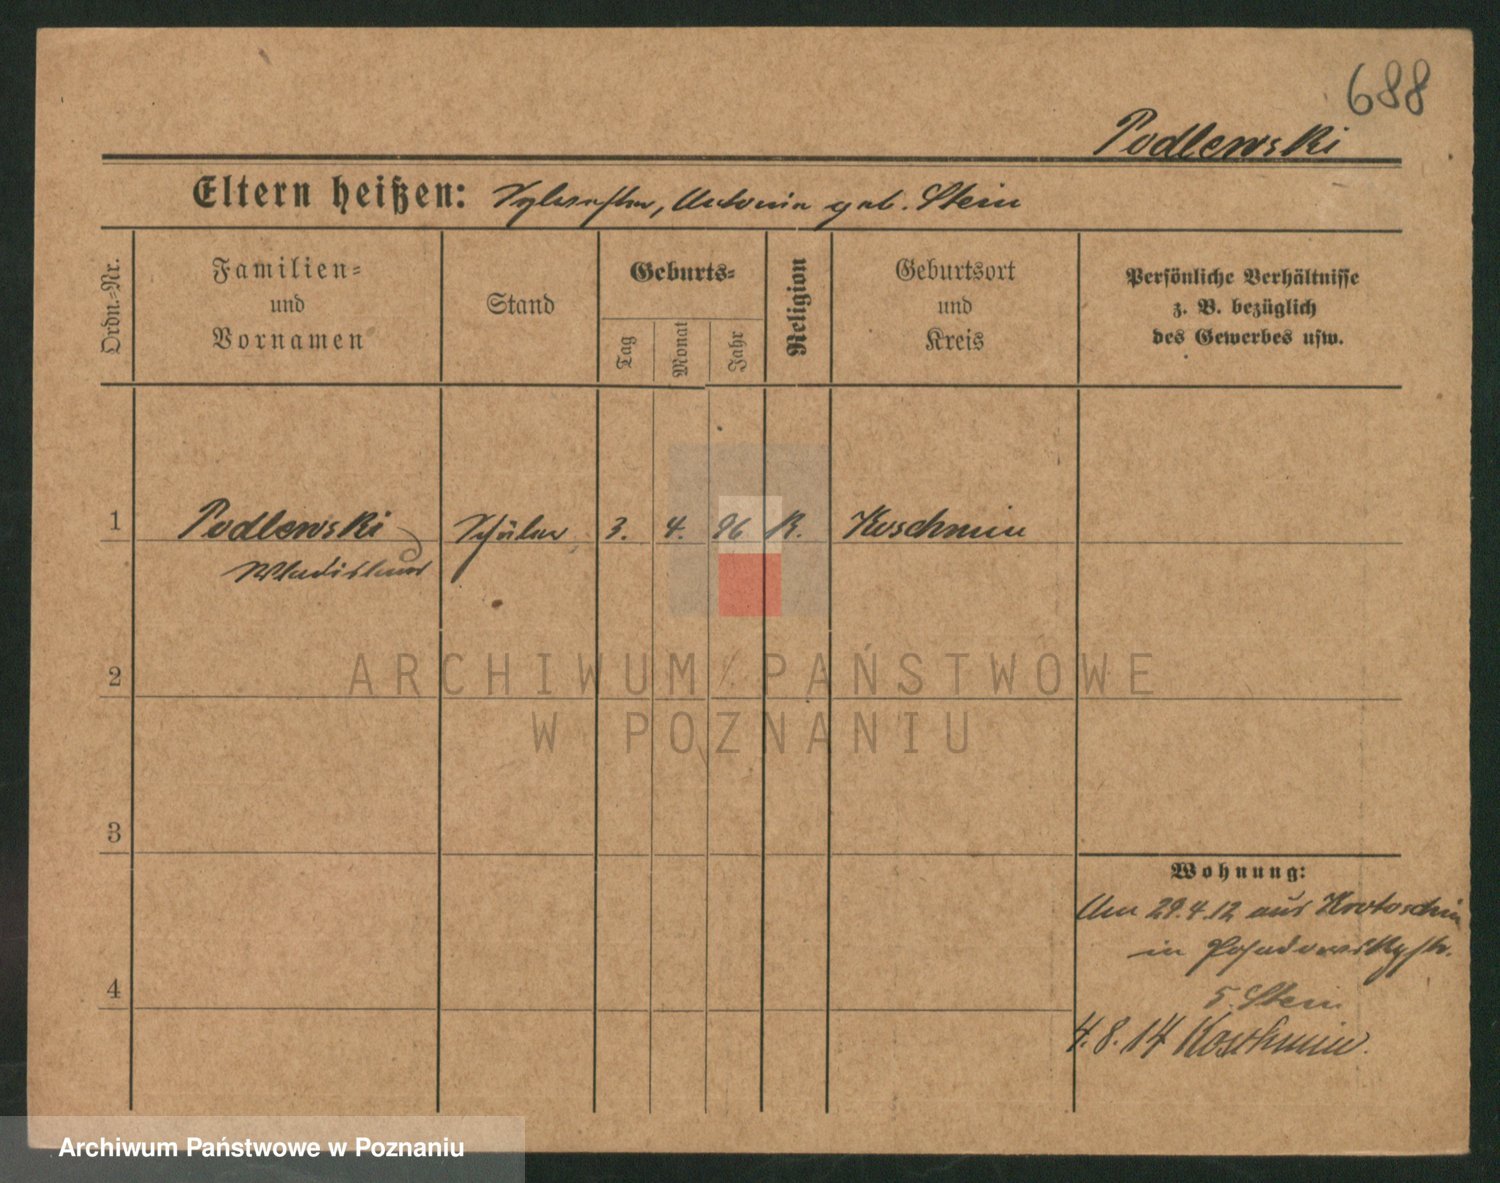 688
Podlewski
Eltern heißen: Sylvester, Antonia geb. Stein
Ordn.-Nr.
Familien-
und
Vornamen
Stand
Geburts-
Tag
Monat
Jahr
Religion
Geburtsort
und
Kreis
Persönliche Verhältnisse
z. B. bezüglich
des Gewerbes usw.
1 Podlewski Schüler 3. 4. 96 K. Koschmin
Wladislaus
2
ARCHIWUM PAŃSTWOWE
W POZNANIU
3
Wohnung:
Am 29.4.12 aus Krotoschin
in Posadowskystr.
5. Stein
4
4.8.14 Koschmin.
Archiwum Państwowe w Poznaniu